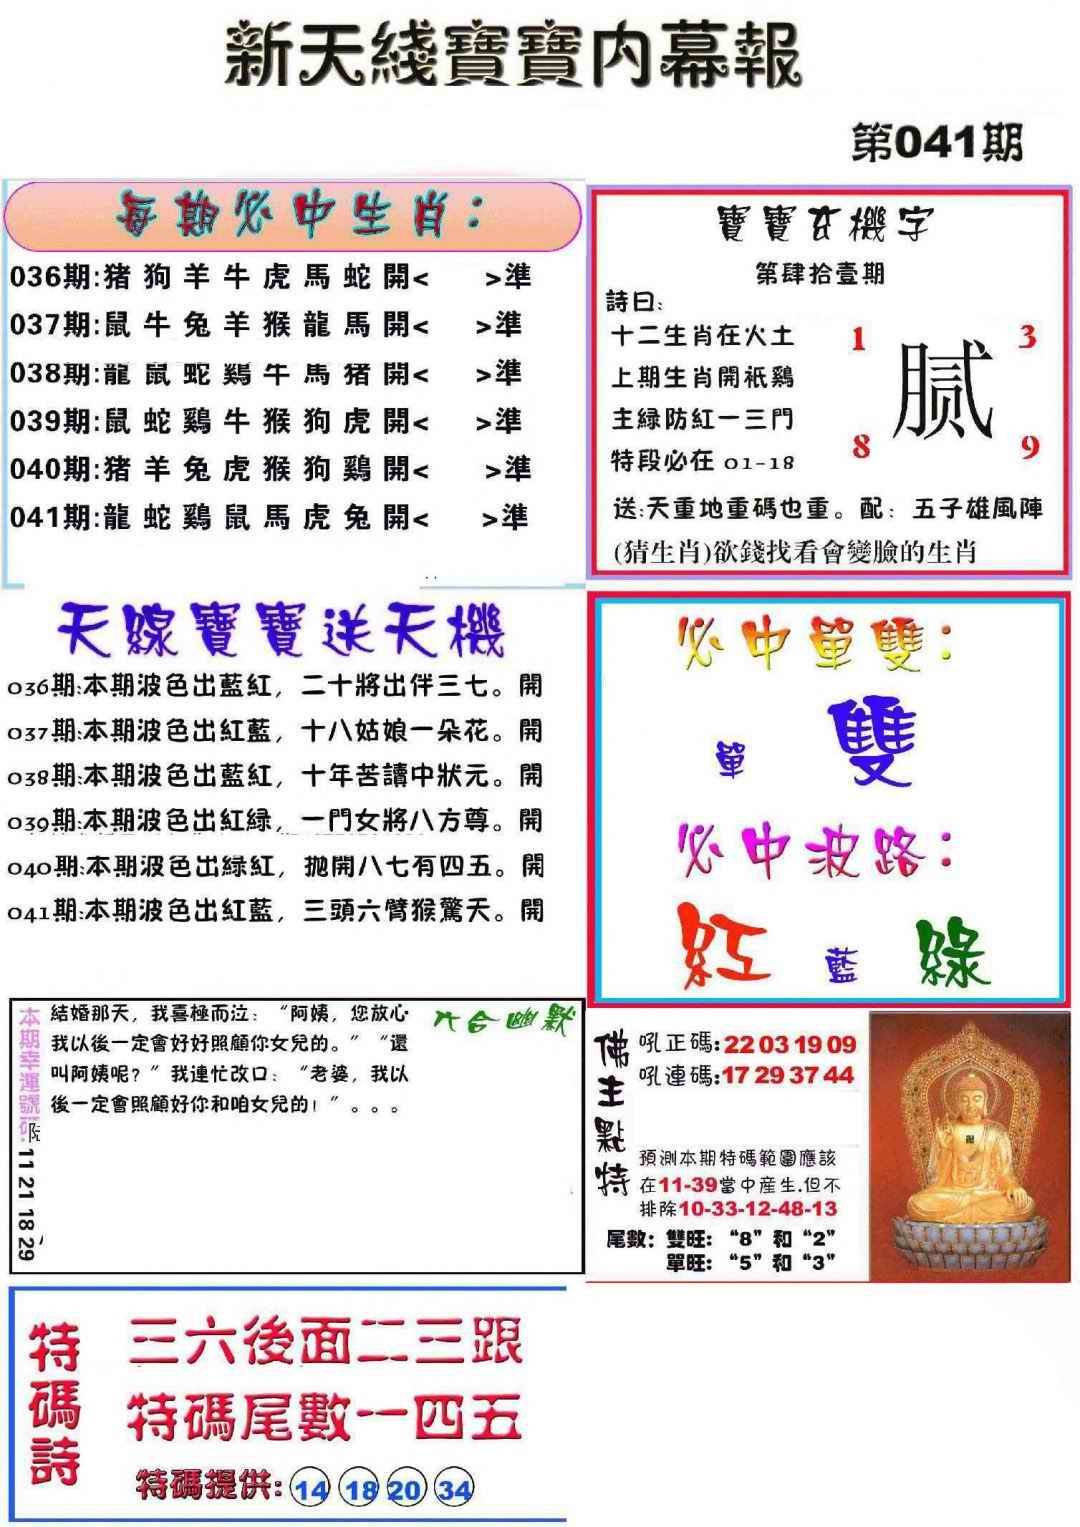 新天綫寶寶内幕報
第041期
每期必中生肖：
036期:猪狗羊牛虎馬蛇開< >準
037期:鼠牛兔羊猴龍馬開< >準
038期:龍鼠蛇鷄牛馬猪開< >準
039期:鼠蛇鷄牛猴狗虎開< >準
040期:猪羊兔虎猴狗鷄開< >準
041期:龍蛇鷄鼠馬虎兔開< >準
寶寶玄機字
第肆拾壹期
詩曰:
十二生肖在火土
上期生肖開祇鷄
主緑防紅一三門
特段必在 01-18
1 3
腻
8 9
送:天重地重碼也重。配：五子雄風陣
(猜生肖)欲錢找看會變臉的生肖
天線寶寶送天機
036期:本期波色出藍紅，二十將出伴三七。開
037期:本期波色出紅藍，十八姑娘一朵花。開
038期:本期波色出藍紅，十年苦讀中狀元。開
039期:本期波色出紅緑，一門女將八方尊。開
040期:本期波色出緑紅，抛開八七有四五。開
041期:本期波色出紅藍，三頭六臂猴驚天。開
必中單雙：
單 雙
必中波路：
紅 藍 綠
本期幸運號碼:
11 21 18 29
六合幽默
結婚那天，我喜極而泣：“阿姨，您放心
我以後一定會好好照顧你女兒的。”“還
叫阿姨呢？”我連忙改口：“老婆，我以
後一定會照顧好你和咱女兒的！”。。。
佛主點特
吼正碼:22 03 19 09
吼連碼:17 29 37 44
預測本期特碼範圍應該
在11-39當中産生.但不
排除10-33-12-48-13
尾數：雙旺：“8”和“2”
單旺：“5”和“3”
特碼詩
三六後面二三跟
特碼尾數一四五
特碼提供: 14 18 20 34